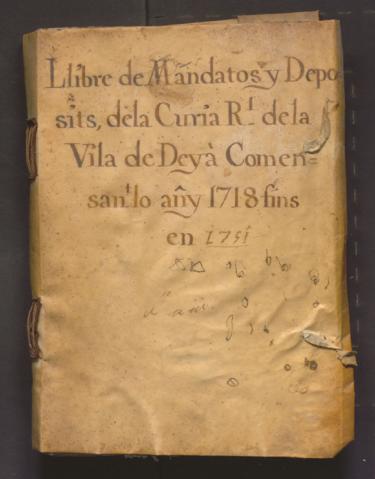 Llibre de Mandatos y Depo
sits, dela Curia R.l dela
Vila de Deyà Comen=
san.t lo añy 1718 fins
en 1751